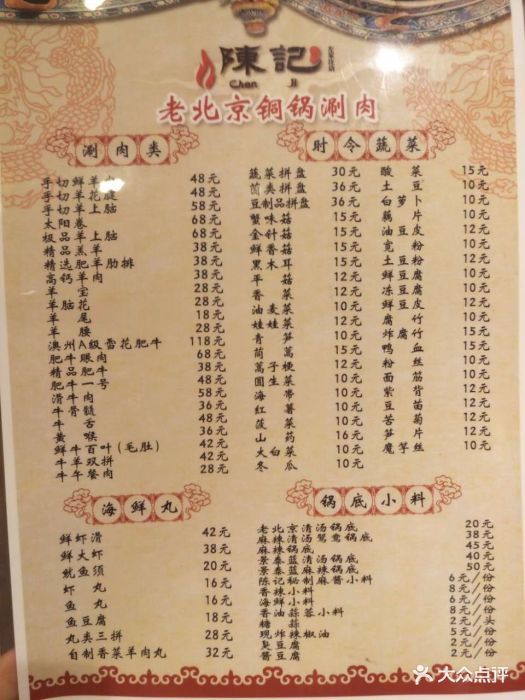 陳記
Chen Ji
老北京铜锅涮肉
涮肉类
手切鲜羊腿 48元
手切羊花腱 48元
手切羊上脑 58元
太阳卷 68元
极品羊上脑 68元
精品羔羊 38元
精选肥羊肋排 38元
高钙羊肉 38元
羊宝 28元
羊脑花 28元
羊尾 18元
羊腰 28元
澳州A级雪花肥牛 118元
肥牛眼肉 68元
精品肥牛 38元
肥牛一号 58元
滑牛肉 56元
牛骨髓 36元
牛舌 48元
黄喉 36元
鲜牛百叶(毛肚) 42元
牛羊双拼 42元
牛午餐肉 28元
时令蔬菜
蔬菜拼盘 30元
菌类拼盘 36元
豆制品拼盘 36元
蟹味菇 15元
金针菇 15元
鲜香菇 15元
黑木耳 15元
平菇 12元
香菜 12元
油麦菜 12元
娃娃菜 12元
青笋 10元
茼蒿 12元
蒿子梗 12元
圆生菜 10元
海带 10元
红薯 10元
菠菜 10元
山药 16元
大白菜 10元
冬瓜 10元
酸菜 15元
土豆 10元
白萝卜 10元
藕片 10元
油豆皮 12元
宽粉 10元
土豆粉 12元
鲜豆腐 10元
冻豆腐 10元
鲜豆皮 12元
腐竹 15元
炸腐竹 15元
鸭血 15元
粉丝 10元
面筋 10元
紫背 12元
豆苗 12元
苦菊 10元
笋片 12元
魔芋丝 10元
海鲜丸
鲜虾滑 42元
鲜大虾 38元
鱿鱼须 20元
虾丸 16元
鱼丸 16元
鱼豆腐 18元
丸类三拼 28元
自制香菜羊肉丸 32元
锅底小料
老北京清汤锅底 20元
麻辣清汤鸳鸯锅底 38元
麻辣锅底 45元
景泰蓝清汤锅底 40元
景泰蓝麻辣锅底 50元
陈记秘制麻酱小料 6元/份
香辣小料 8元/份
海鲜小料 6元/份
香油蒜蓉小料 8元/份
糖蒜 2元/头
现炸辣椒油 5元/份
臭豆腐 2元/份
酱豆腐 2元/份
大众点评